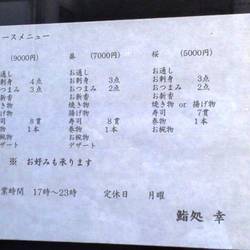 ースメニュー
(9000円) 藤 (7000円) 桜 (5000円)
通し お通し お通し
刺身 4点 お刺身 3点 お刺身 3点
つまみ 3点 おつまみ 2点 おつまみ 2点
新香 お新香 お新香
き物 焼き物 焼き物 or 揚げ物
げ物 揚げ物 寿司 7貫
司 8貫 寿司 8貫 巻物 1本
物 1本 巻物 1本 お椀物
椀物 お椀物 デザート
ザート デザート
※ お好みも承ります
業時間 17時~23時 定休日 月曜
鮨処 幸